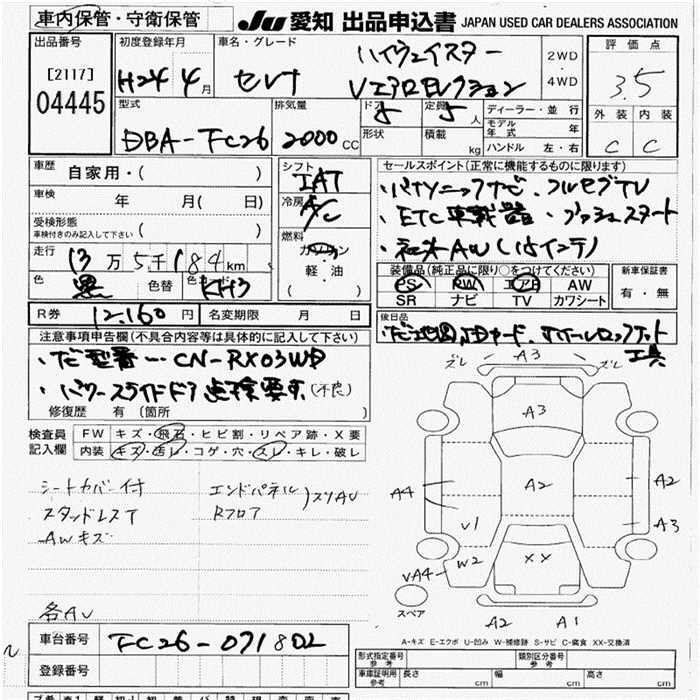 車内保管・守衛保管
JU 愛知 出品申込書 JAPAN USED CAR DEALERS ASSOCIATION
出品番号 初度登録年月 車名・グレード ハイウェイスター 2WD ・ 4WD 評価点
[2117] H24 4月 セレナ Vエアロセレクション 3.5
04445
型式 排気量 ドア 定員 ディーラー・並行 外装 内装
DBA-FC26 2000CC 5 5人 モデル年式 年 C C
形状 積載 kg ハンドル 左・右
車歴 自家用・( ) シフト IAT セールスポイント(正常に機能するものに限ります)
車検 年 月( 日) 冷房 A/C ・パナソニックナビ・フルセグTV
受検形態 車検付きのみ記入して下さい ( ) 燃料 ガソリン・軽・油 ( ) ・ETC車載器・プッシュスタート
走行 13万5千184km ・社外AW
色 黒 色替 色コード KH3 装備品(純正品に限り○をつけてください) 新車保証書
PS PW エアB AW 有・無
SR ナビ TV カワシート
R券 12,160円 名変期限 月 日 後日品
注意事項申告欄(不具合内容等は具体的に記入して下さい)
・ナビ型番… CN-RX03WD
・パワースライドドア点検要す(不良) 工具
修復歴 有 (箇所 )
検査員記入欄 FW キズ・飛石・ヒビ割・リペア跡・X要
内装 キズ・汚レ・コゲ・穴・スレ・キレ・破レ
シートカバー付 エンドパネル
スタッドレスT Rフロア
AWキズ
各AU
ズレ A3 ズレ
A3
A4 A2 A2
V1 A3
W2 XX
VA4
スペア
A2 A1
A-キズ E-エクボ U-凹み W-補修跡 S-サビ C-腐食 XX-交換済
車台番号 FC26-071802
登録番号
形式指定番号 参考 類別区分番号 参考
車庫証明用 参考 長さ cm 幅 cm 高さ cm